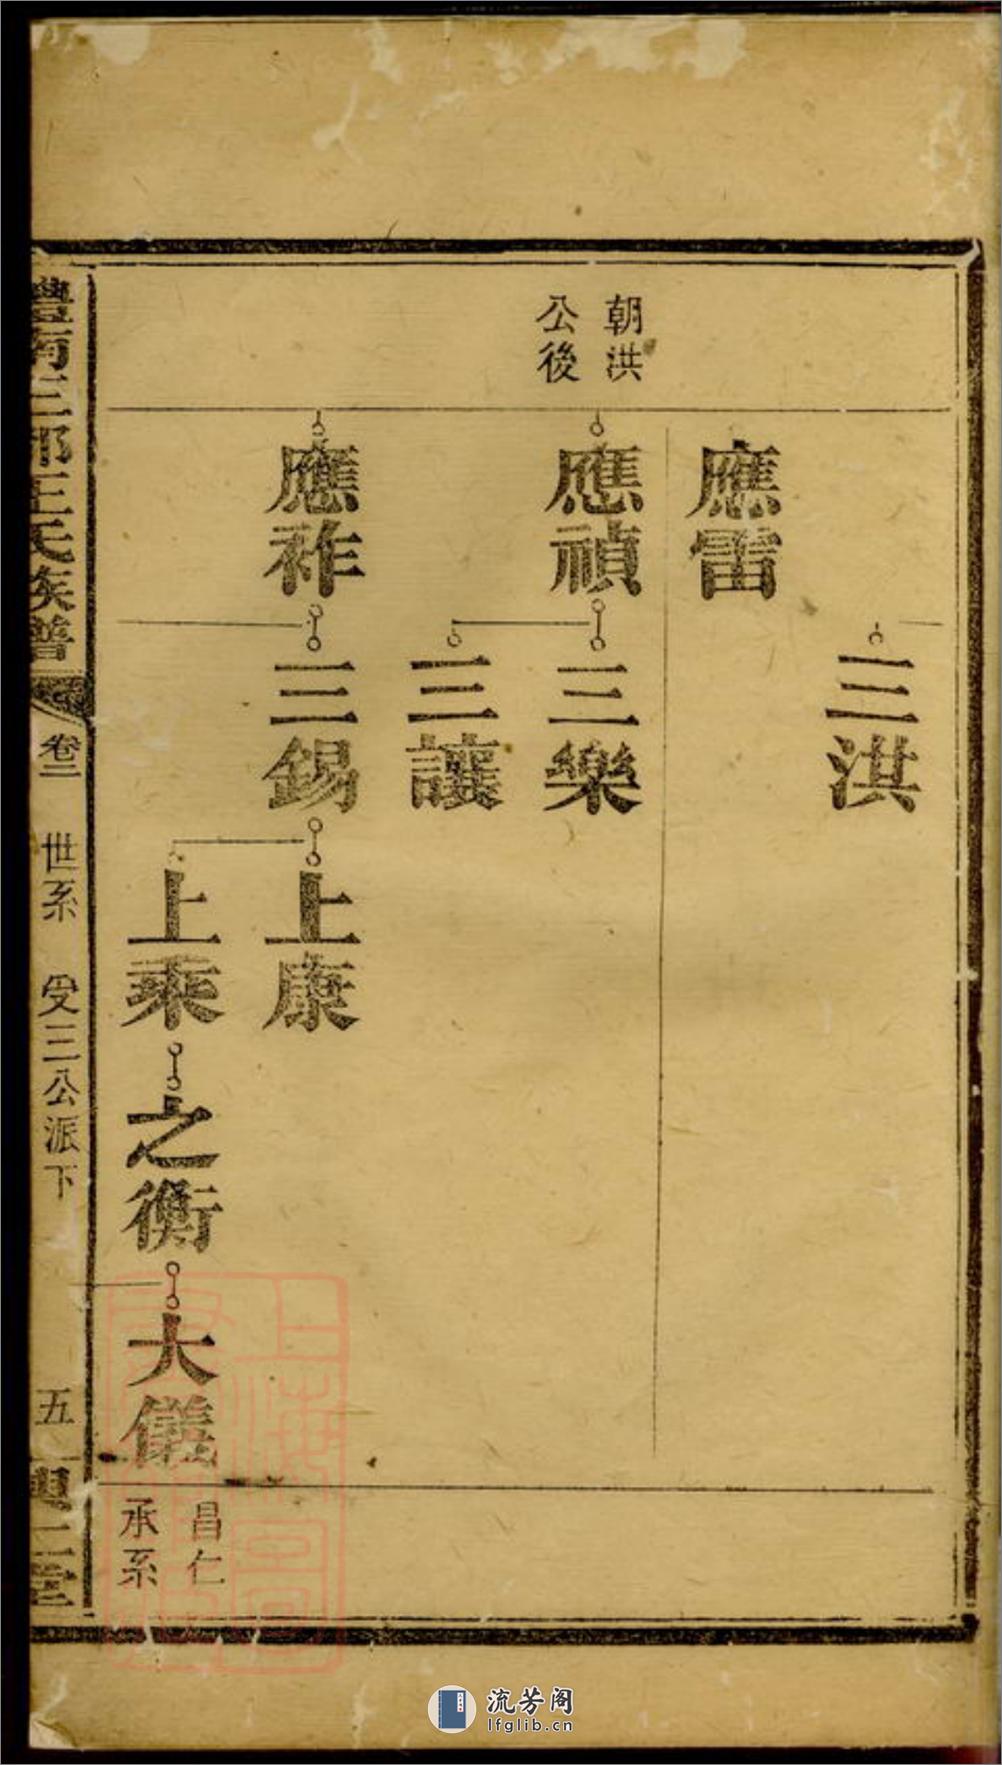 三洪
應雷
朝洪
公後
應禎
三樂
三讓
應祚
三錫
上康
上乘
之衡
大儀
昌仁
承系
豐南三郎王氏族譜
卷二
世系
受三公派下
五
流芳阁
lfglib.cn